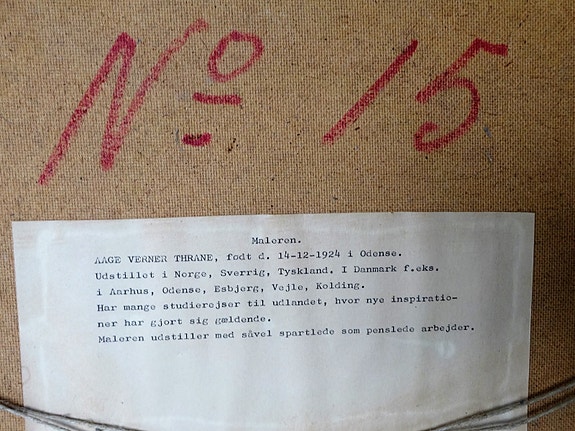 Nº 15
Maleren.
AAGE VERNER THRANE, født d. 14-12-1924 i Odense.
Udstillet i Norge, Sverrig, Tyskland. I Danmark f.eks.
i Aarhus, Odense, Esbjerg, Vejle, Kolding.
Har mange studierejser til udlandet, hvor nye inspiratio-
ner har gjort sig gældende.
Maleren udstiller med såvel spartlede som penslede arbejder.